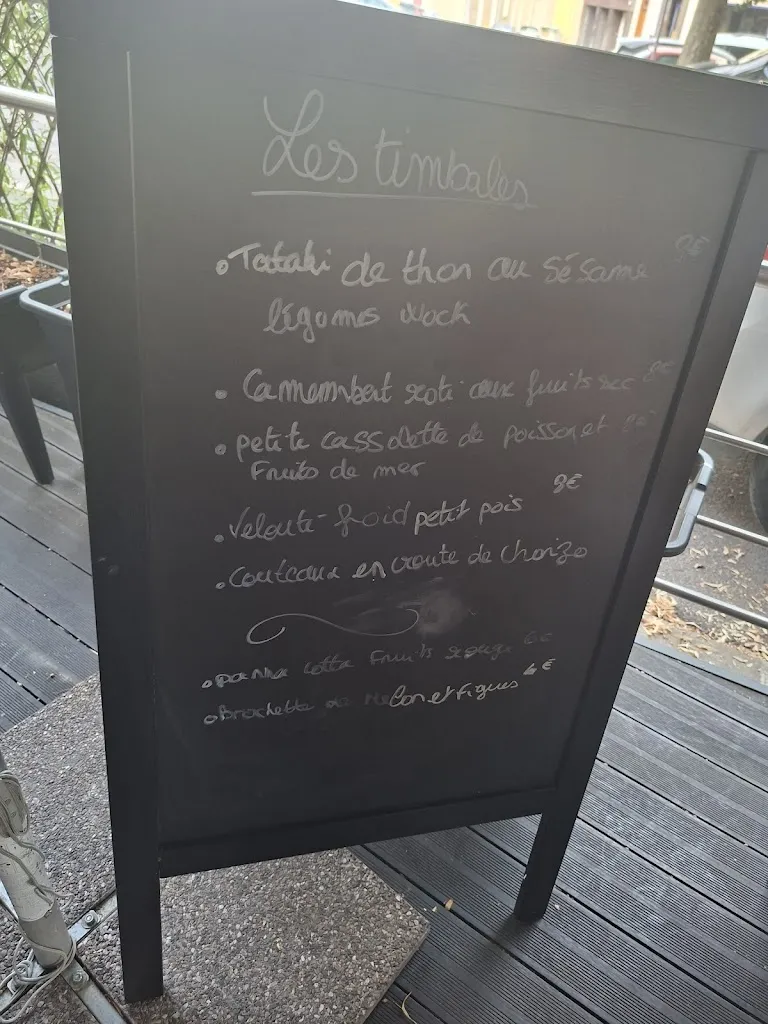 Les timbales
• Tataki de thon au sésame 9€
légumes wock
• Camembert roti aux fruits sec 8€
• petite cassolette de poisson et
Fruits de mer
• Velouté froid petit pois 8€
• Couteaux en croute de chorizo
• panna cotta Fruits rouge 6€
• Brochette de Melon et Figues 6€